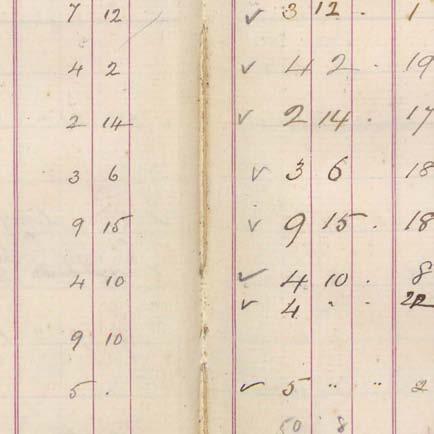 7 12 ✓ 3 12 . 1
4 2 ✓ 4 2 . 19
2 14 ✓ 2 14 . 17
3 6 ✓ 3 6 18
9 15 ✓ 9 15 . 18
4 10 ✓ 4 10 . 8
✓ 4 " "
9 10
5 . ✓ 5 " " 2
50 8